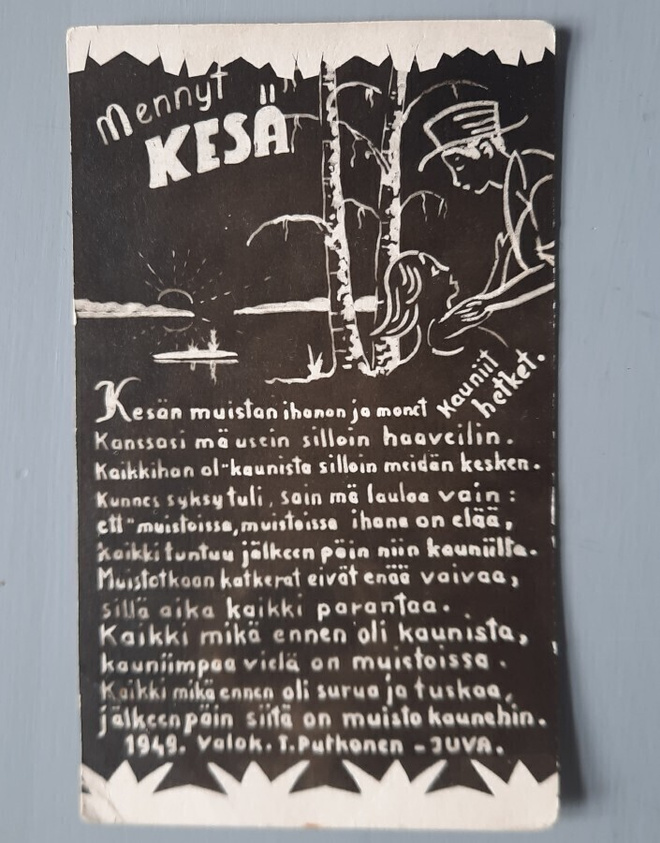 Mennyt
KESÄ
Kesän muistan ihanan ja monet kauniit hetket.
Kanssasi mä usein silloin haaveilin.
Kaikkihan ol" kaunista silloin meidän kesken.
Kunnes syksy tuli, sain mä laulaa vain:
ett" muistoissa, muistoissa ihana on elää,
kaikki tuntuu jälkeen päin niin kauniilta.
Muistotkaan katkerat eivät enää vaivaa,
sillä aika kaikki parantaa.
Kaikki mikä ennen oli kaunista,
kauniimpaa vielä on muistoissa.
Kaikki mikä ennen oli surua ja tuskaa,
jälkeenpäin siitä on muisto kaunehin.
1949. Valok. T. Putkonen - JUVA.